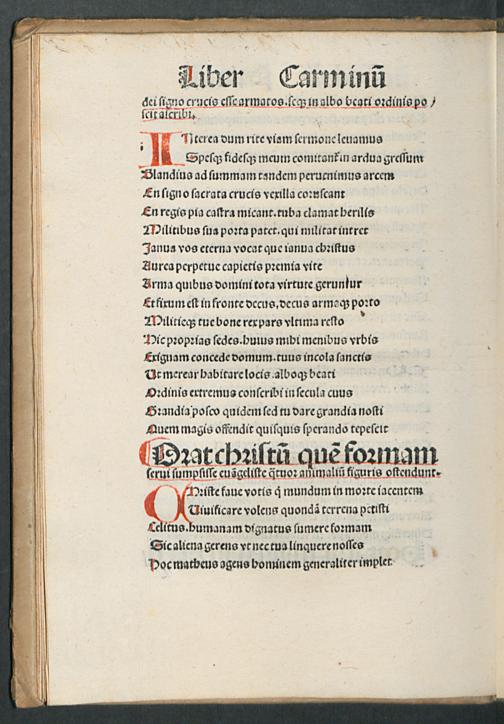 Liber Carminũ
dei signo crucis esse armatos. seqꝫ in albo beati ordinis po /
scit ascribi.
INterea dum rite viam sermone leuamus
Spesqꝫ fidesqꝫ meum comitant̃ in ardua gressum
Blandius ad summam tandem peruenimus arcem
En signo sacrata crucis vexilla coruscant
En regis pia castra micant. tuba clamat herilis
Militibus sua porta patet. qui militat intret
Janua vos eterna vocat que ianua christus
Aurea perpetue capietis premia vite
Arma quibus domini tota virtute geruntur
Et fixum est in fronte decus, decus armaqꝫ porto
Militieqꝫ tue bone rex pars vltima resto
Hic proprias sedes. huius mihi menibus vrbis
Exiguam concede domum. tuus incola sanctis
Ut merear habitare locis. alboqꝫ beati
Ordinis extremus conscribi in secula ciuis
Grandia posco quidem sed tu dare grandia nosti
Quem magis offendit quisquis sperando tepescit
Orat christũ quẽ formam
serui sumpsisse euãgeliste q̃tuor animaliũ figuris ostendunt.
CHriste faue votis q̃ mundum in morte iacentem
Viuificare volens quondã terrena petisti
Celitus. humanam dignatus sumere formam
Sic aliena gerens vt nec tua linquere nosses
Hoc matheus agens hominem generaliter implet.